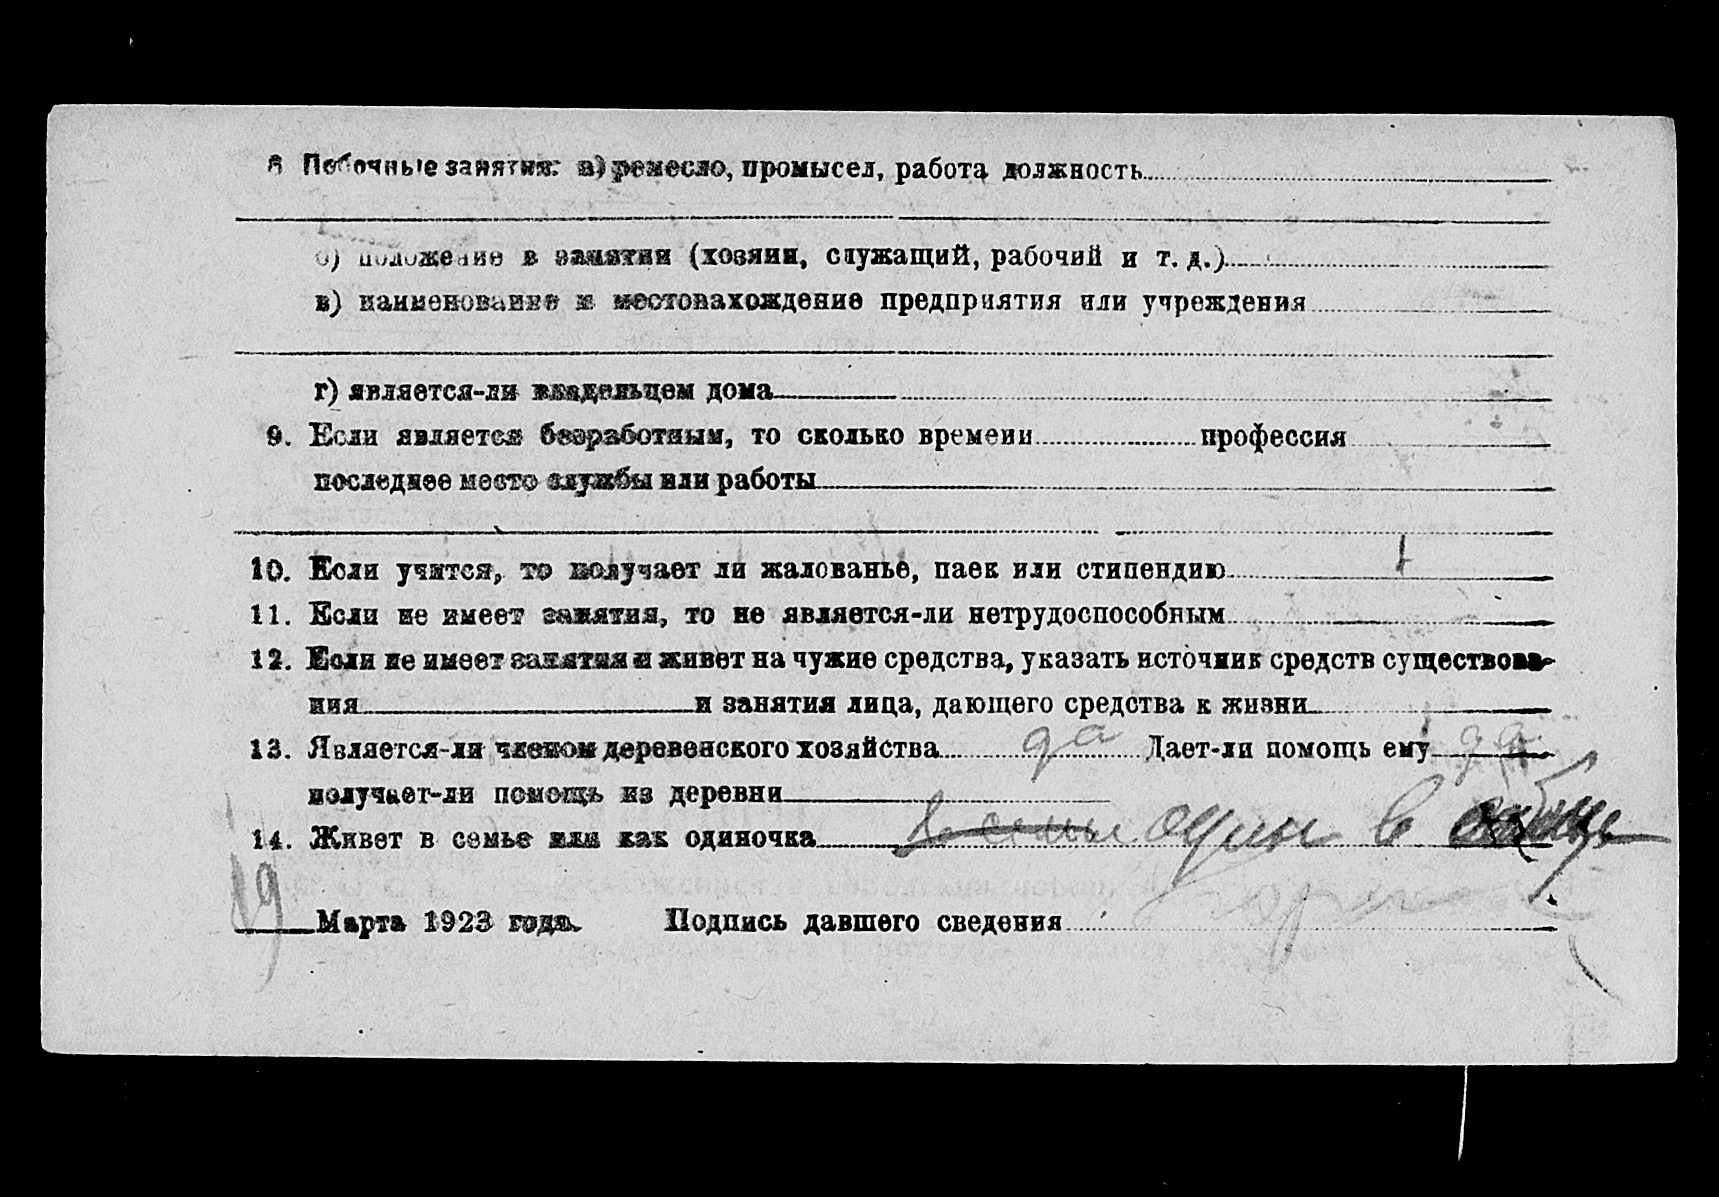 8 Побочные занятия: а) ремесло, промысел, работа должность
б) положение в занятии (хозяин, служащий, рабочий и т. д.)
в) наименование и местонахождение предприятия или учреждения
г) является-ли владельцем дома
9. Если является безработным, то сколько времени профессия
последнее место службы или работы
10. Если учится, то получает ли жалованье, паек или стипендию
11. Если не имеет занятия, то не является-ли нетрудоспособным
12. Если не имеет занятия и живет на чужие средства, указать источник средств существова-
ния и занятия лица, дающего средства к жизни
13. Является-ли членом деревенского хозяйства да Дает-ли помощь ему да
получает-ли помощь из деревни
14. Живет в семье или как одиночка в семьи один в
19 Марта 1923 года. Подпись давшего сведения